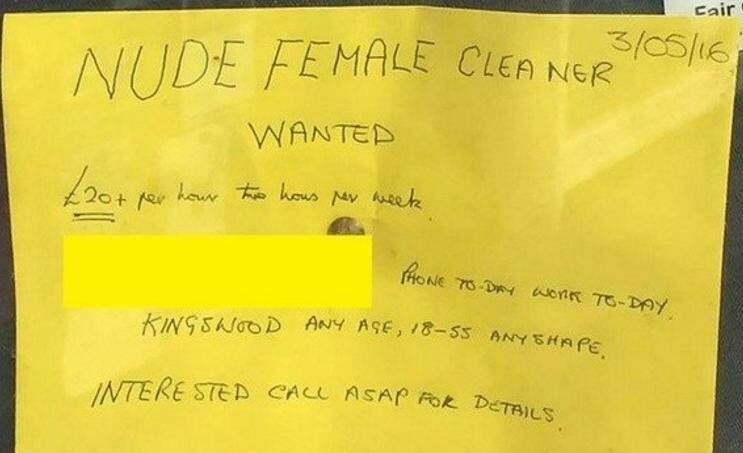 Fair
3/05/16
NUDE FEMALE CLEANER
WANTED
£20+ per hour two hours per week
PHONE TO-DAY WORK TO-DAY.
KINGSWOOD ANY AGE, 18-55 ANY SHAPE.
INTERESTED CALL ASAP FOR DETAILS.